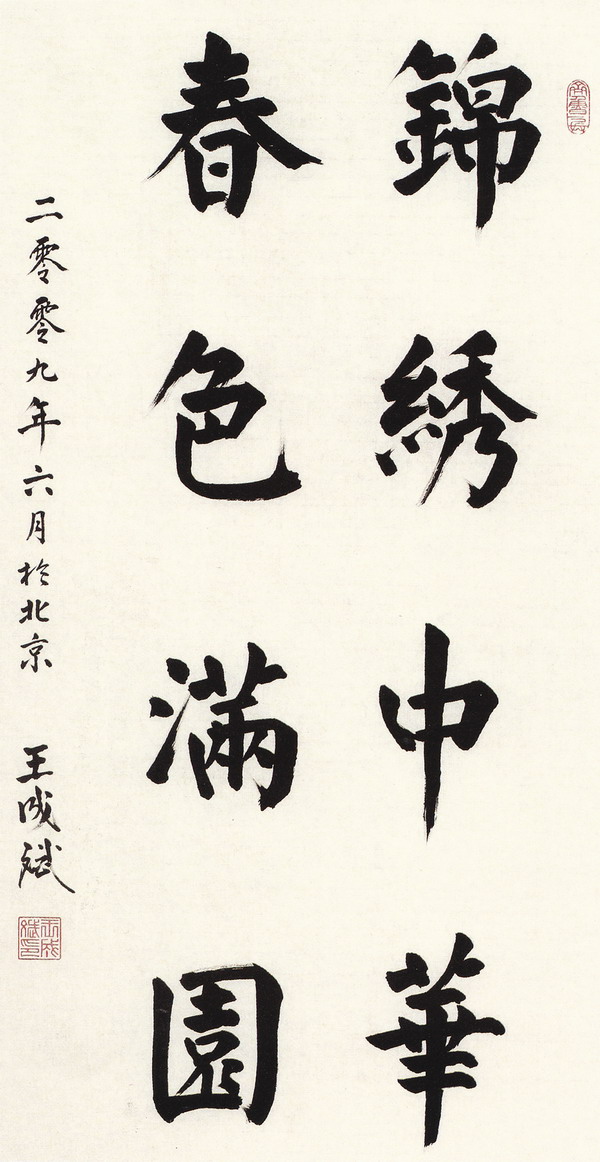 錦绣中華
春色滿園
二零零九年六月於北京 王成斌